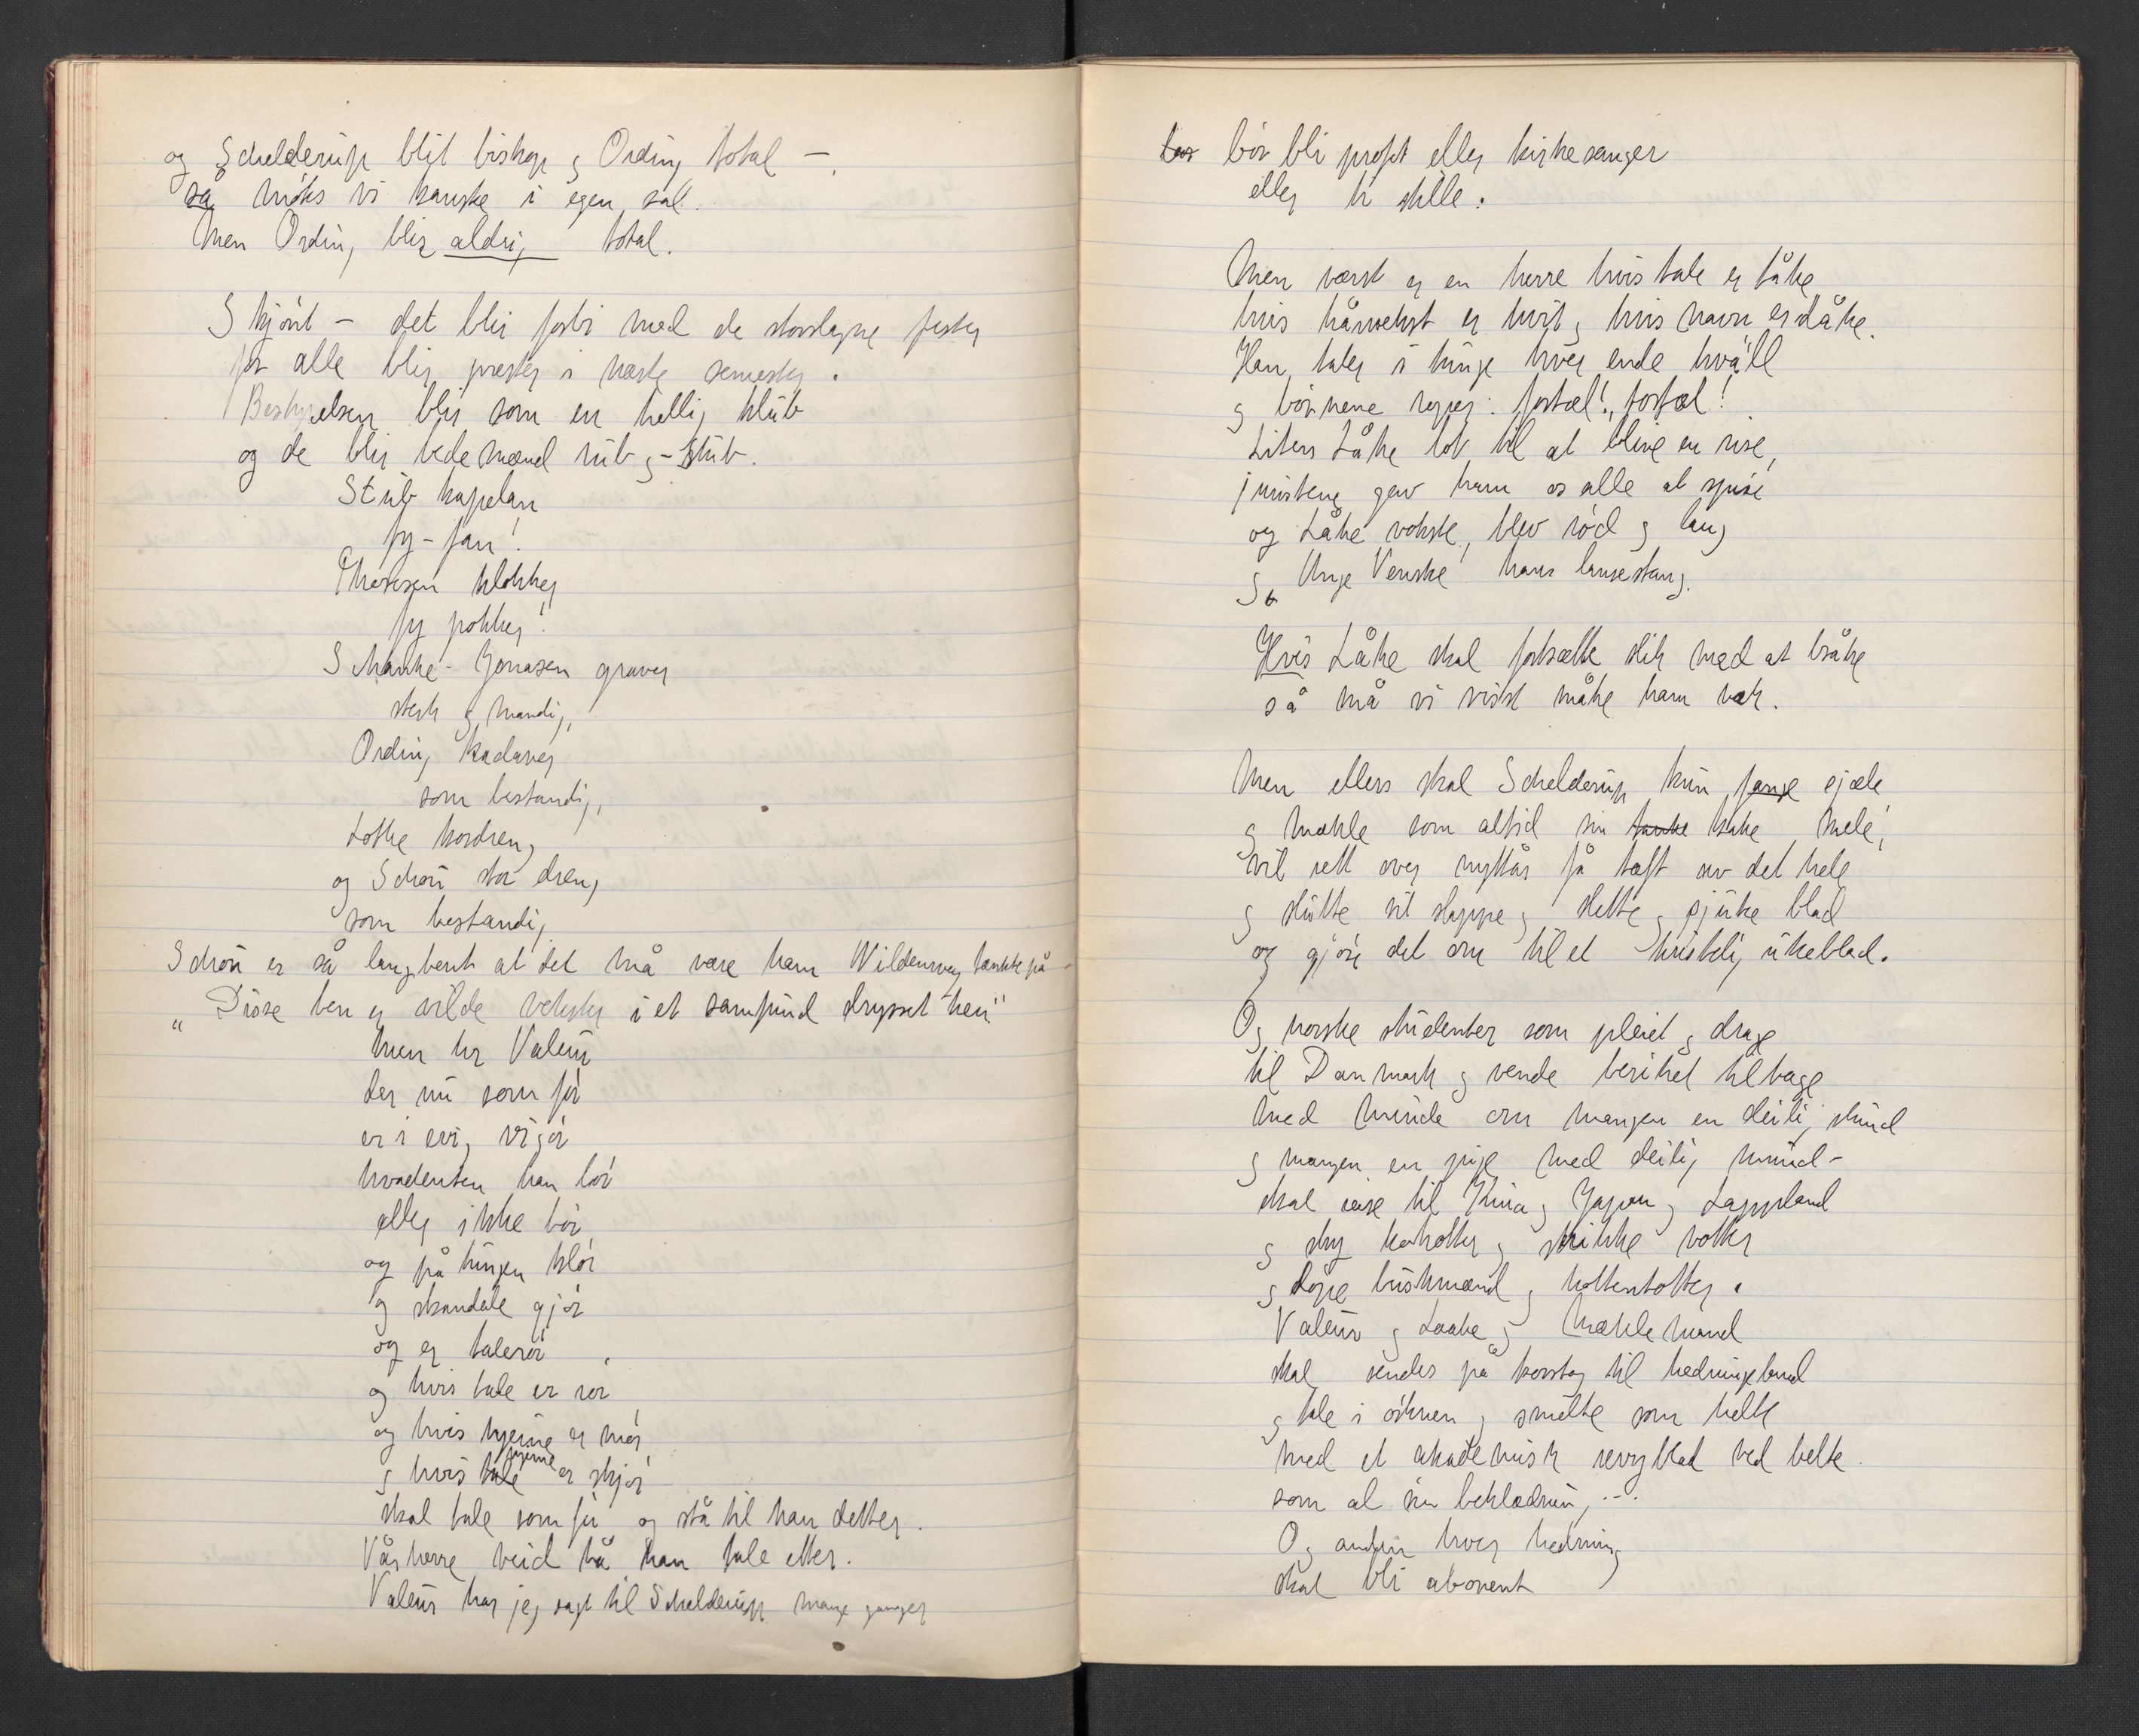 og Schelderup blit biskop og Ording total –.
så møtes vi kanske i egen sal.
Men Ording blir aldrig total.
Skjønt – det blir forbi med de storslagne fester
for alle blir prester i næste semester.
Bestyrelsen blir som en hellig klub
og de blir bedemænd rub og – stub.
Stub kapelan
fy – fan!
Thoresen klokker
fy pokker!
Schanke-Jonasen graver
sterk og mandig,
Ording kadaver
som bestandig,
Lotke kordreng
og Schøn stor dreng
som bestandig
Schøn er så langbent at det må være ham Wildenvey tænkte på
"Disse ben er vilde vekster i et samfund drysset hen"
Men hr Valeur
der nu som før
er i evig vigør
hvadenten han bør
eller ikke bør,
og på tingen klør
og skandale gjør
og er talerør,
og hvis tale er rør
og hvis hjerne er mør
og hvis tale hjerne er skjør
skal tale som før og stå til han detter.
Vår herre veid hå han tale etter.
Valeur har jeg sagt til Schelderup mange ganger
bør bli profet eller kirkesanger
eller ti stille.
Men værst er en herre hvis tale er tåke
hvis hårvekst er hvit og hvis navn er Låke.
Han taler i tinge hver ende kväll
og børnene roper: fortæl!, fortæl!
Liten Låke lot til at blive en rise,
juristene gav ham os alle at spise
og Låke vokste, blev rød og lang
og Unge Venske hans lansestang.
Hvis Låke skal fortsætte slik med at bråke
så må vi visst måke ham væk.
Men ellers skal Schelderup kun fange sjæle
og Mæhle som altid sin tanke kake mele,
vil rett over nyttår få tæft av det hele
og slutte sit slappe og slette og sjuke blad
og gjøre det om til et kristelig ukeblad.
Og norske studenter som pleiet og drage
til Danmark og vende beriket tilbage
med minde om mangen en deilig stund
og mangen en pige med deilig mund –
skal reise til Kina og Japan og Lappland
og sky kokotter og strikke votter
og døpe buskmænd og hottentotter.
Valeur og Laake og Mæhle mand
skal sendes på korstog til hedningeland
og tale i ørknen og smelte som helte
med et akademisk revyblad ved belte
som al sin beklædning...
Og anden hver hedning
skal bli abonent